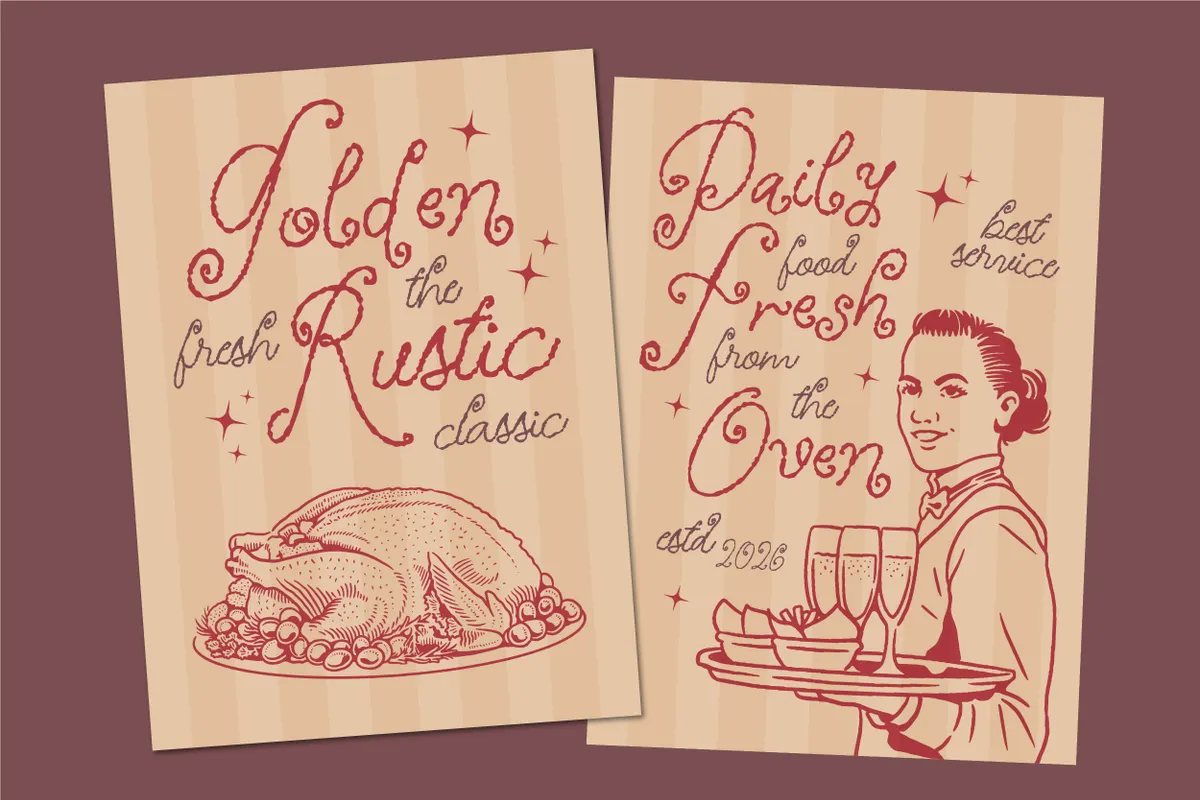 Golden
the
fresh Rustic
classic
Daily
best
service
food
Fresh
from
the
Oven
estd 2026